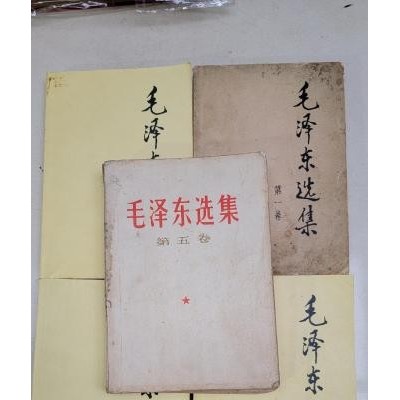 毛泽东
毛泽东选集
第一卷
毛泽东选集
第五卷
毛泽东